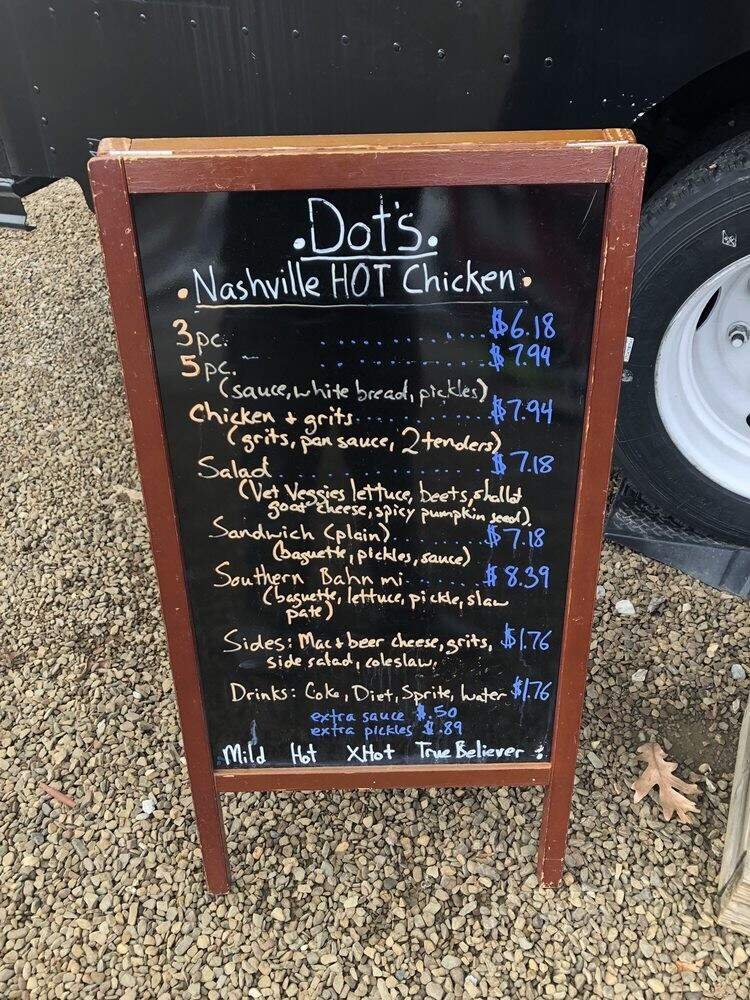 .Dot's.
• Nashville HOT Chicken •
3pc. .......... $6.18
5pc. .......... $7.94
(sauce, white bread, pickles)
Chicken + grits .......... $7.94
(grits, pan sauce, 2 tenders)
Salad .......... $7.18
(Vet Veggies lettuce, beets, shallot
goat cheese, spicy pumpkin seed).
Sandwich (plain) ....... $7.18
(baguette, pickles, sauce)
Southern Bahn mi ....... $8.39
(baguette, lettuce, pickle, slaw
pate)
Sides: Mac + beer cheese, grits, $1.76
side salad, coleslaw.
Drinks: Coke, Diet, Sprite, water $1.76
extra sauce $.50
extra pickles $.89
Mild Hot XHot True Believer